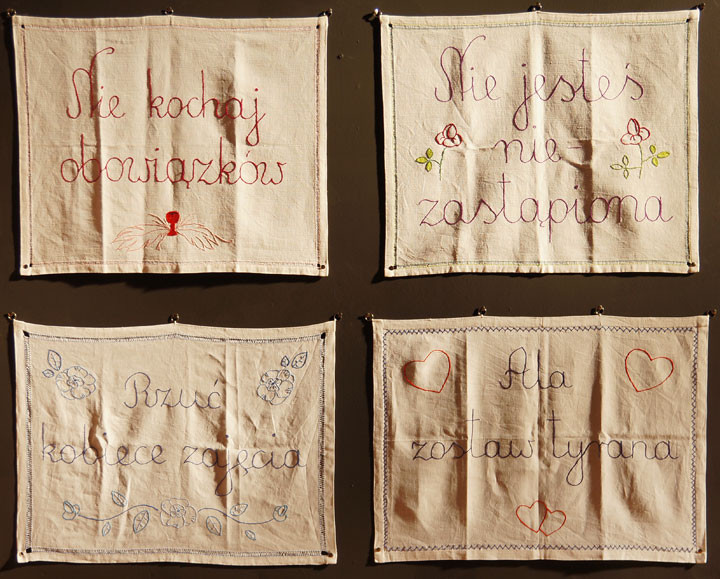 Nie kochaj
obowiązków
Nie jesteś
nie-
zastąpiona
Rzuć
kobiece zajęcia
Ala
zostaw tyrana